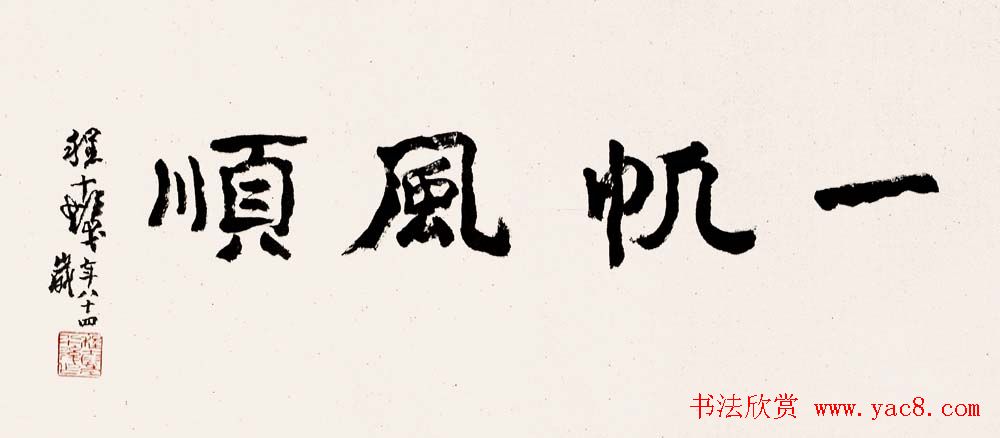 一帆風順
程十髮年八十四歲
书法欣赏 www.yac8.com